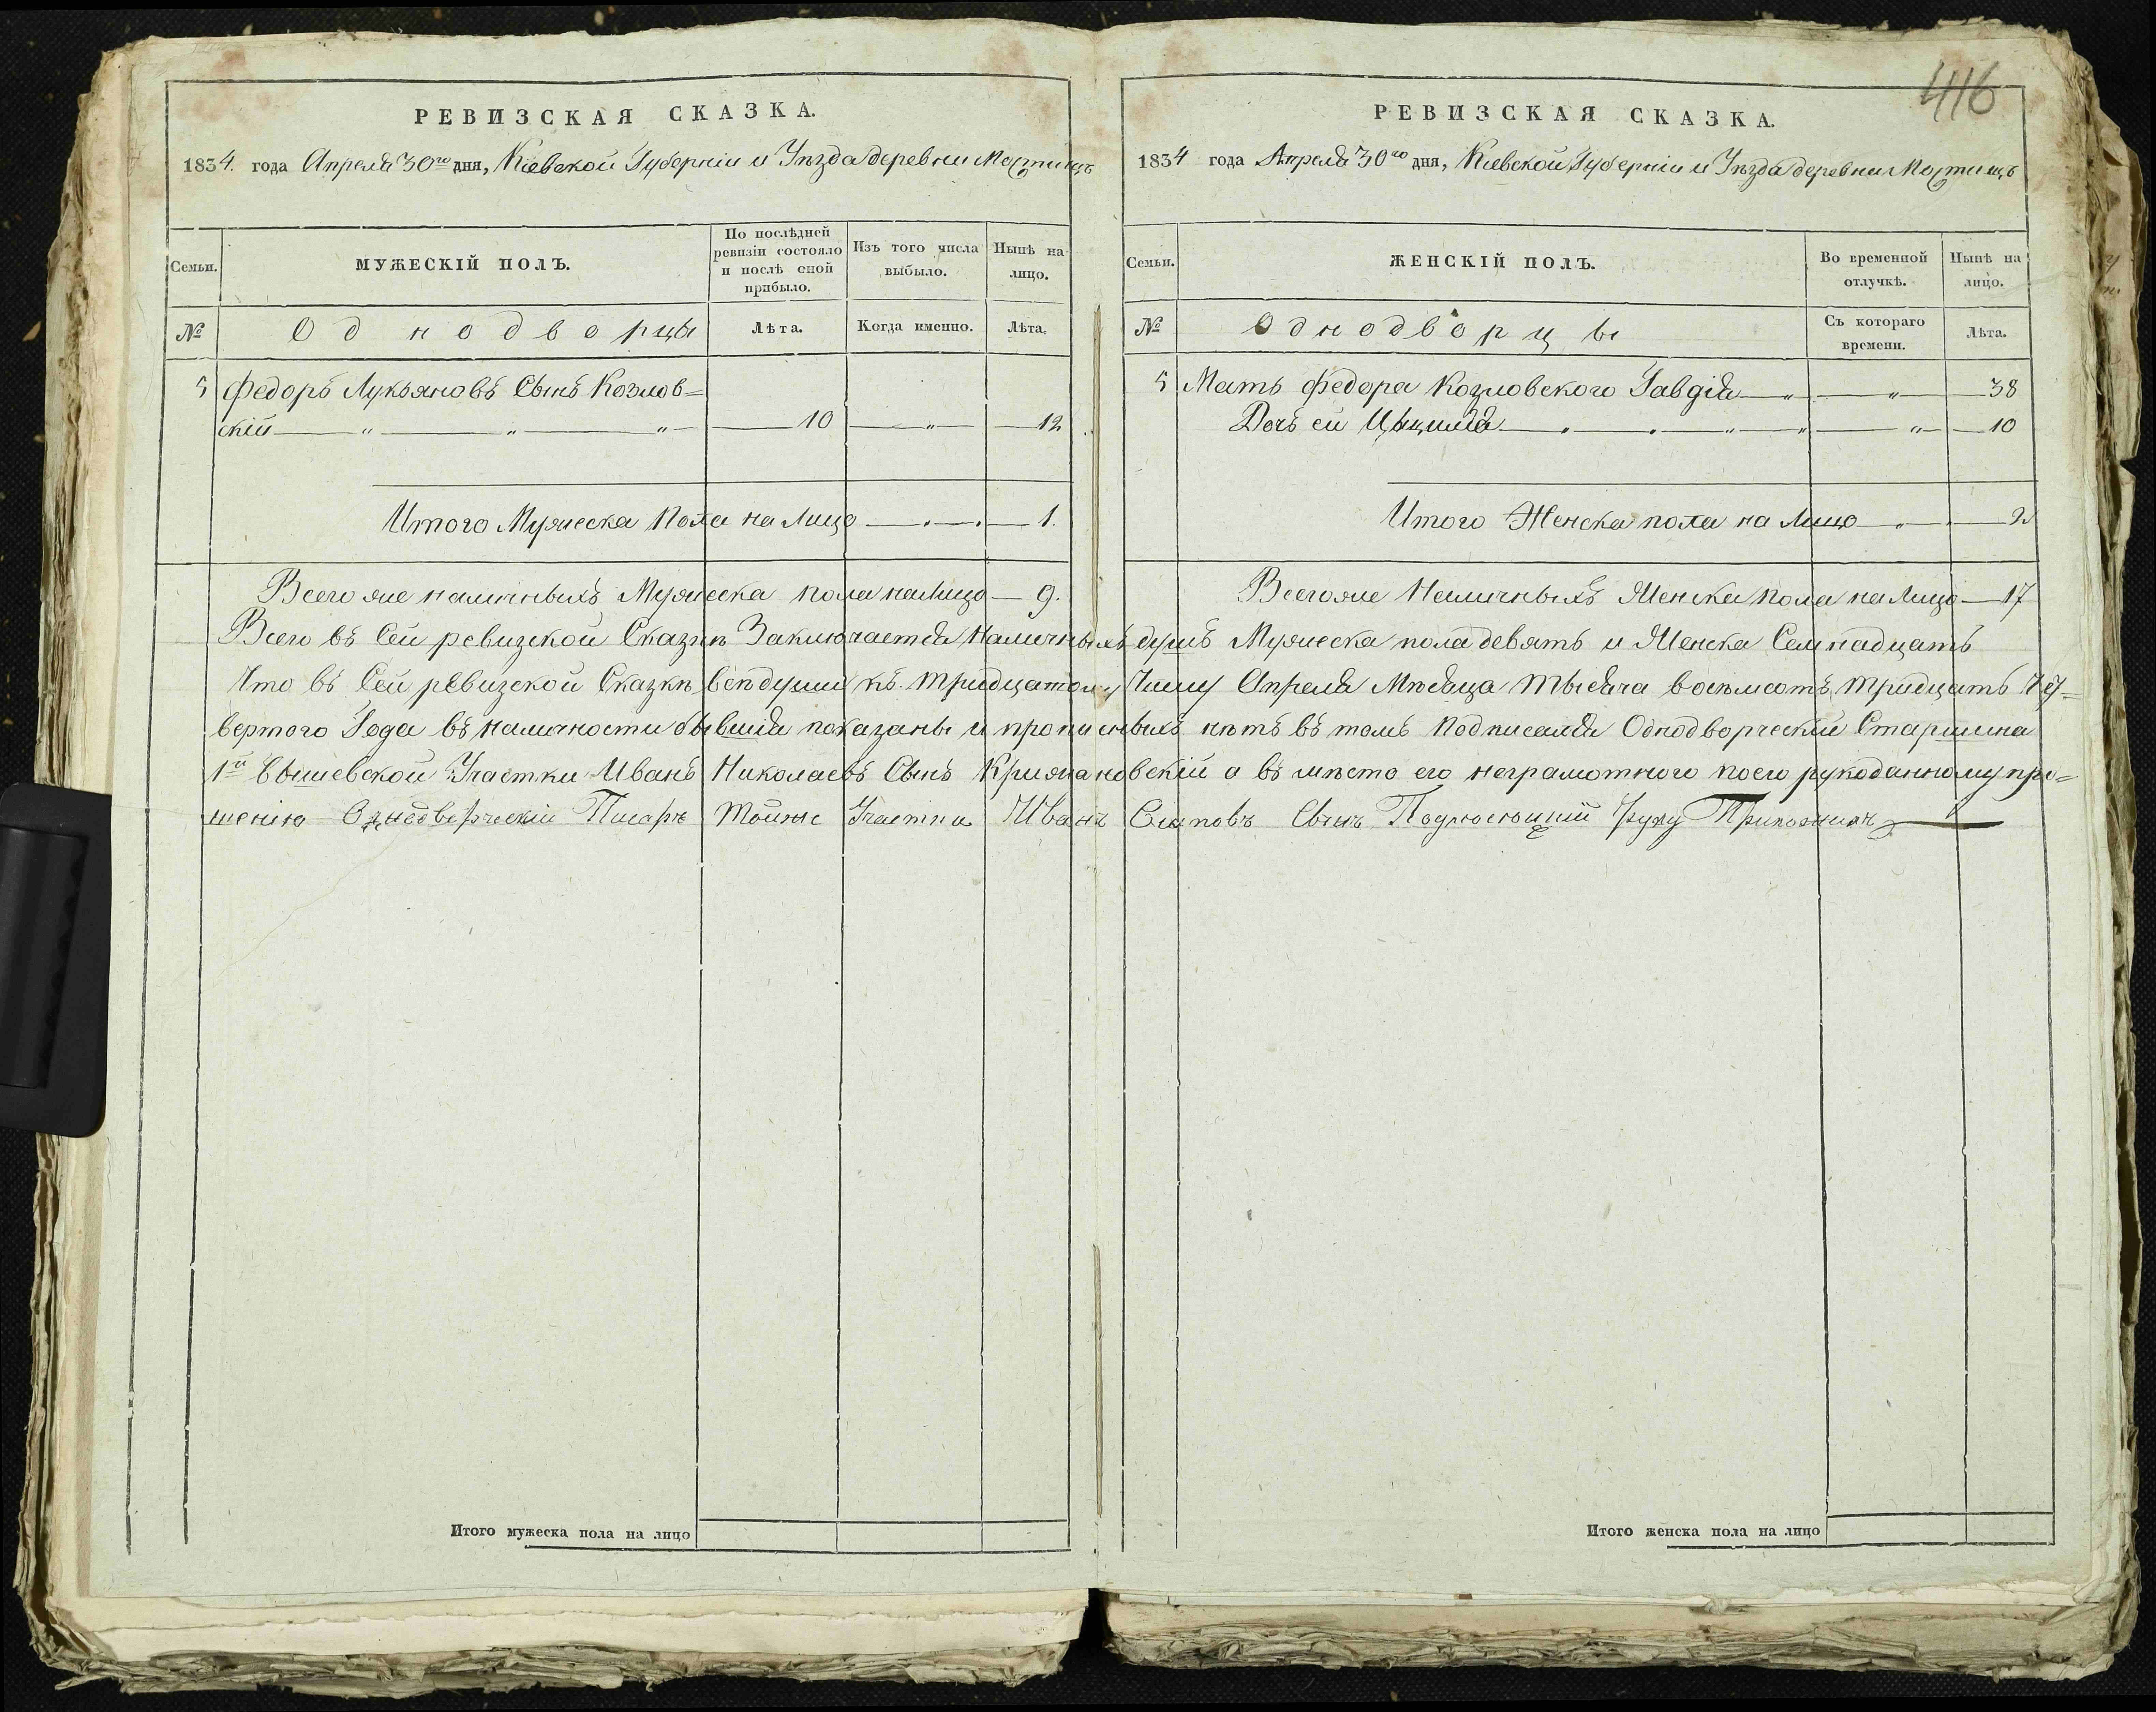 416
РЕВИЗСКАЯ СКАЗКА.
1834. года Апреля 30го дня, Киевской Губерніи и Уѣзда деревни
Семьи.
МУЖЕСКІЙ ПОЛЪ.
По послѣдней ревизіи состояло и послѣ оной прибыло.
Изъ того числа выбыло.
Нынѣ на лицо.
№
Однодворцы
Лѣта.
Когда именно.
Лѣта.
5 Федоръ Лукьяновъ Сынъ Козлов=
скій — „ — „ — „ — 10 — „ — 12
Итого Мужеска Пола на Лицо — 1.
Всего же наличныхъ Мужеска пола на Лицо — 9.
РЕВИЗСКАЯ СКАЗКА.
1834 года Апреля 30го дня, Киевской Губерніи и Уѣзда деревни
Семьи.
ЖЕНСКІЙ ПОЛЪ.
Во временной отлучкѣ.
Нынѣ на лицо.
№
Однодворцы
Съ котораго времени.
Лѣта.
5 Мать Федора Козловского Гавдія — „ — „ — 38
Дочъ ей — „ — „ — „ — „ — „ — 10
Итого Женска пола на Лицо — „ — 2
Всего же Наличныхъ Женска пола на Лицо — 17
Всего въ Сей ревизской Сказкѣ Заключается Наличныхъ душъ Мужеска пола девять и Женска Семнадцать
Что въ Сей ревизской Сказкѣ всѣ души къ тридцатому Числу Апреля Мѣсяца тысяча восемсотъ тридцать Чет=
вертого Года въ наличности бывшія показаны и прописныхъ нѣтъ въ томъ подписался Однодворческій Старшина
1й Участки Иванъ Николаевъ Сынъ Крижановскій а въ мѣсто его неграмотного по его рукоданному про=
шению Однодворческій Писарь Тойже Участки Иванъ Сынъ Руку Приложилъ
Итого мужеска пола на лицо
Итого женска пола на лицо